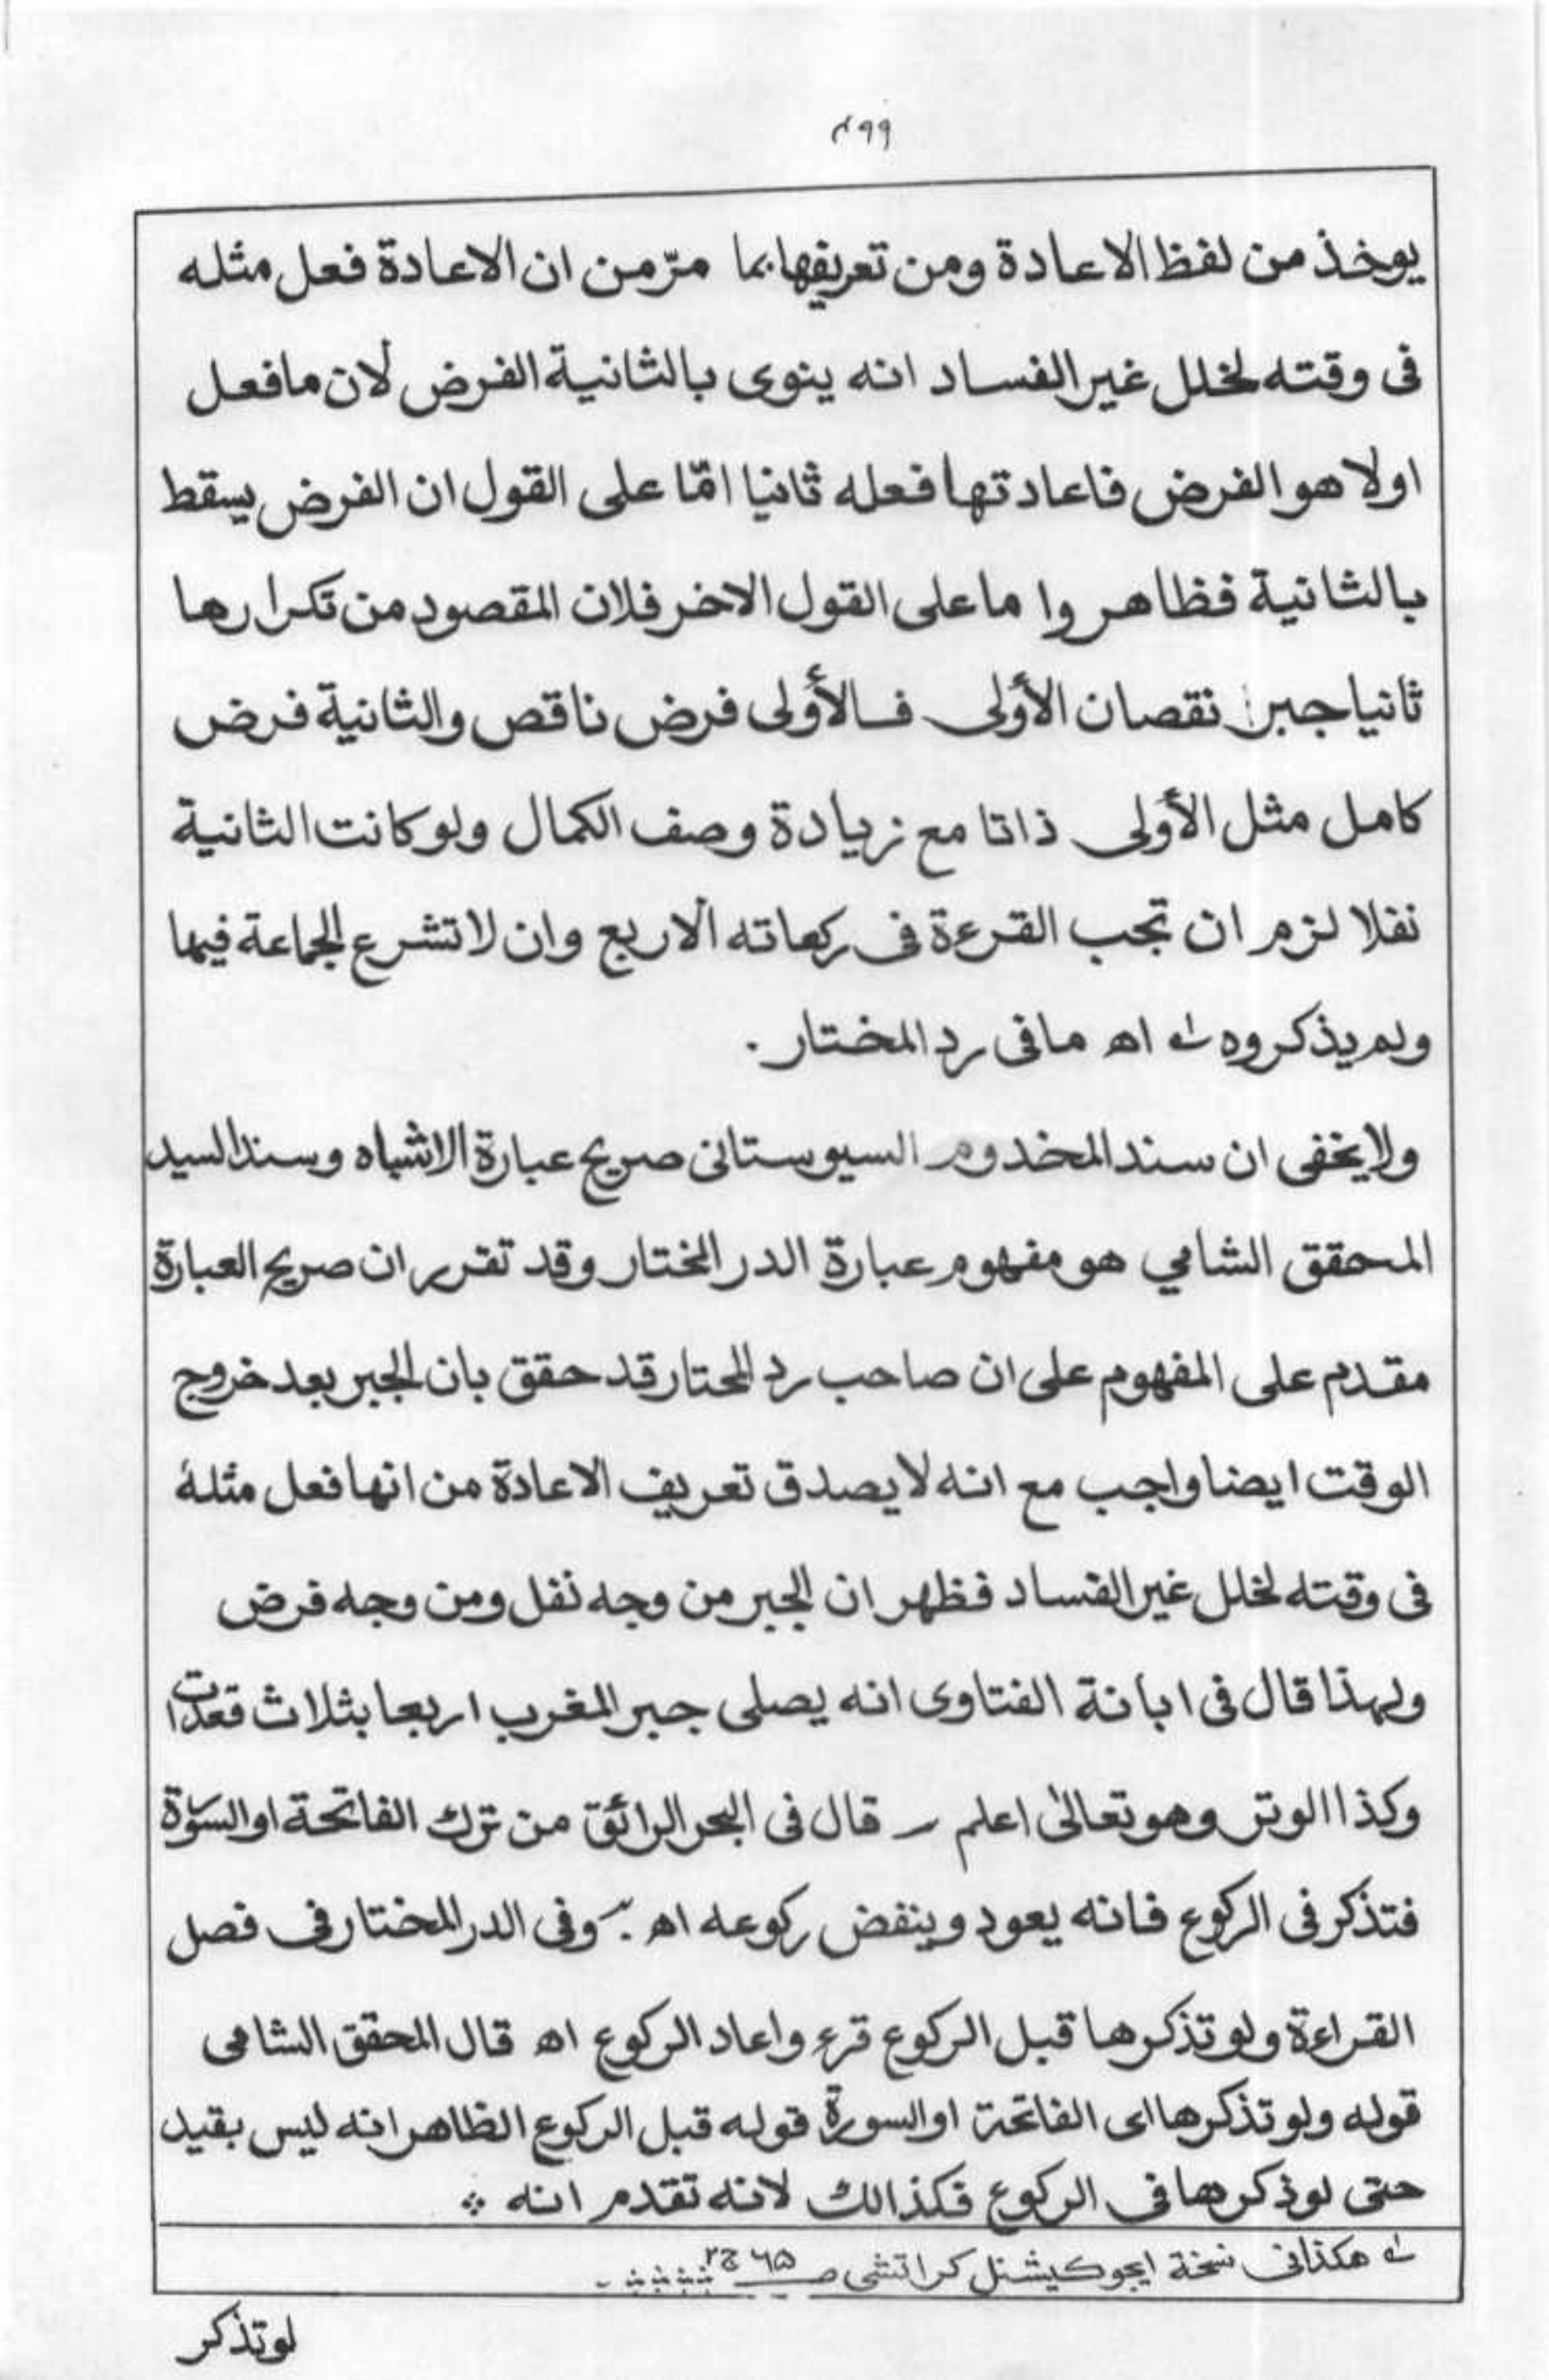 ۴۹۹
يوخذ من لفظ الاعادة ومن تعريفها بما مرّ من ان الاعادة فعل مثله
فى وقته لخلل غير الفساد انه ينوى بالثانية الفرض لان ما فعل
اولا هو الفرض فاعادتها فعله ثانيا امّا على القول ان الفرض يسقط
بالثانية فظاهر واما على القول الاخر فلان المقصود من تكرارها
ثانيا جبر نقصان الأولى فالأولى فرض ناقص والثانية فرض
كامل مثل الأولى ذاتا مع زيادة وصف الكمال ولو كانت الثانية
نفلا لزم ان تجب القرءة فى ركعاته الاربع وان لا تشرع الجماعة فيها
ولم يذكروه له اه ما فى رد المختار .
ولا يخفى ان سند المخدوم السيوستانى صريح عبارة الاشباه وسند السيد
المحقق الشامي هو مفهوم عبارة الدر المختار وقد تقرر ان صريح العبارة
مقدم على المفهوم على ان صاحب رد المحتار قد حقق بان الجبر بعد خروج
الوقت ايضا واجب مع انه لا يصدق تعريف الاعادة من انها فعل مثله
فى وقته لخلل غير الفساد فظهر ان الجبر من وجه نفل ومن وجه فرض
ولهذا قال فى ابانة الفتاوى انه يصلى جبر المغرب اربعا بثلاث قعدات
وكذا الوتر وهو تعالىٰ اعلم ـ قال فى البحر الرائق من ترك الفاتحة او السورة
فتذكر فى الركوع فانه يعود وينفض ركوعه اه . وفى الدر المختار فى فصل
القراءة ولو تذكرها قبل الركوع قرء واعاد الركوع اه قال المحقق الشامى
قوله ولو تذكرها اى الفاتحة او السورة قوله قبل الركوع الظاهر انه ليس بقيد
حتى لو ذكرها فى الركوع فكذالك لانه تقدم انه
له هكذا فى نسخة ايجوكيشنل كراتشى صـ ۶۵ ج ۲
لو تذكر